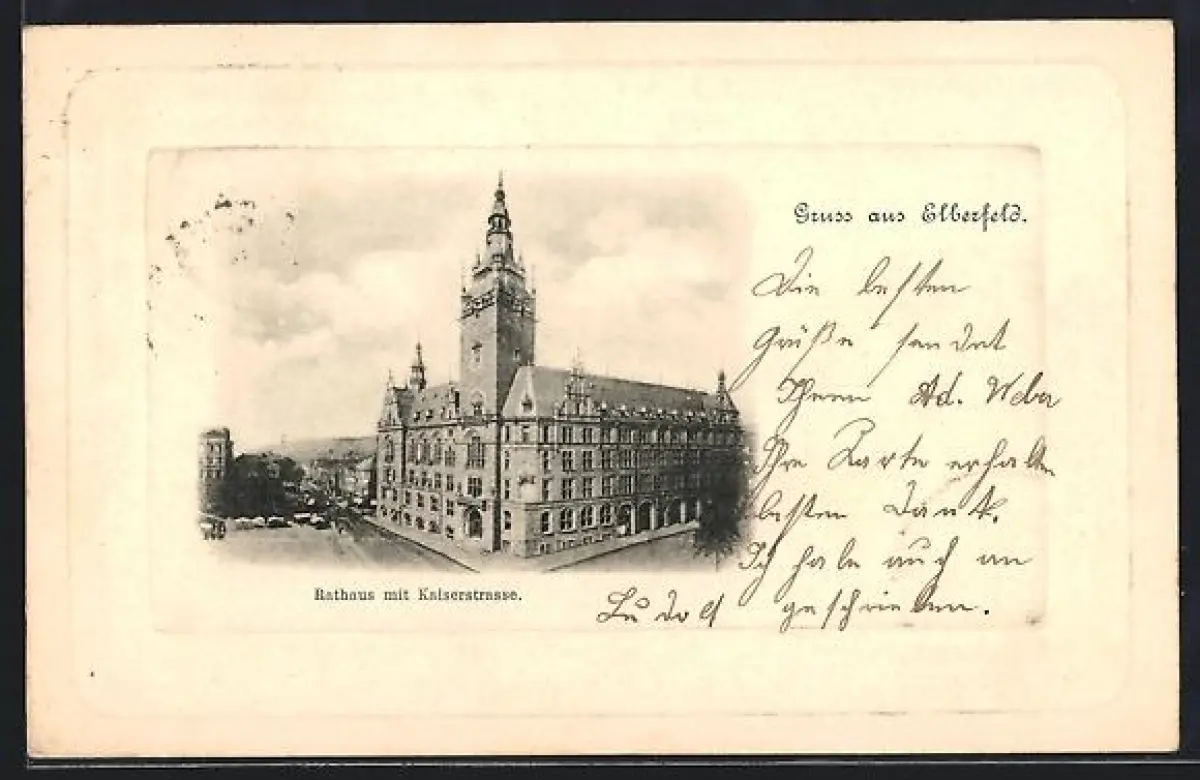 Gruss aus Elberfeld.
Die besten
Grüße sendet
Ihnen Ad. Weber
Ihre Karte erhalten
besten Dank.
Ich habe auch an
geschrieben.
Rathaus mit Kaiserstrasse.